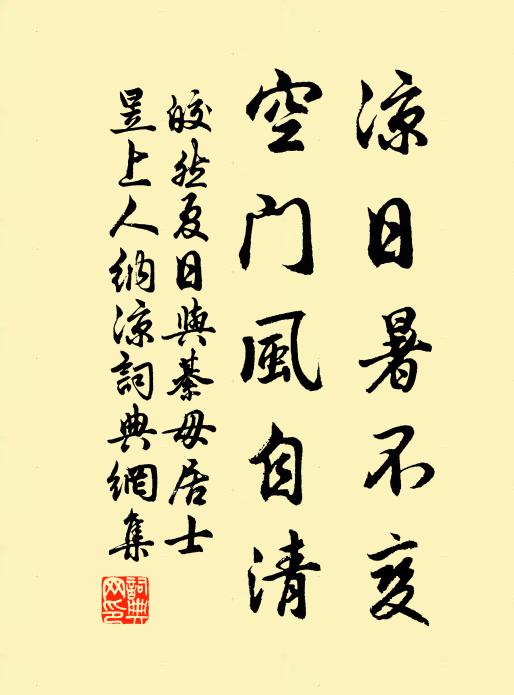 凉日暑不变
空门風自清
皎然夏日與綦毋居士
昱上人纳凉詞典網集
詞典網印